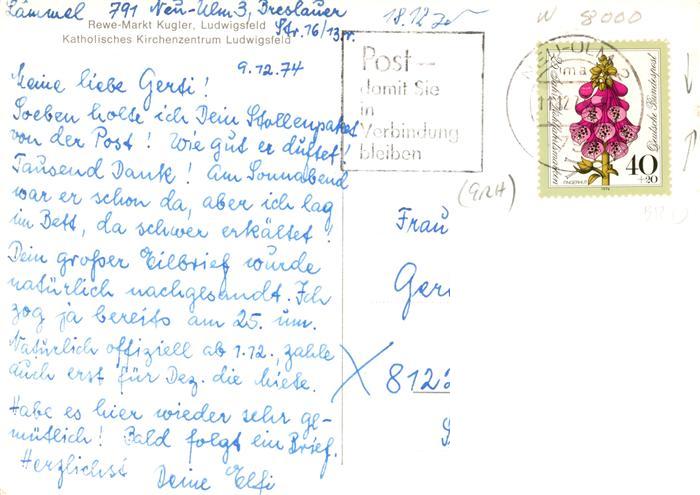 Lämmel 791 Neu-Ulm 3, Breslauer
Str. 16/13.r.
Rewe-Markt Kugler, Ludwigsfeld
Katholisches Kirchenzentrum Ludwigsfeld
9.12.74
Meine liebe Gerti!
Soeben holte ich Dein Stollenpaket
von der Post! Wie gut er duftet!
Tausend Dank! Am Sonnabend
war er schon da, aber ich lag
im Bett, da schwer erkältet!
Dein großer Eilbrief wurde
natürlich nachgesandt. Ich
zog ja bereits am 25. um.
Natürlich offiziell ab 1.12., zahle
auch erst für Dez. die Miete.
Habe es hier wieder sehr ge-
mütlich! Bald folgt ein Brief.
Herzlichst Deine Elfi
18.12
W 8000
Post—
damit Sie
in
Verbindung
bleiben
NEU-ULM
Deutsche Bundespost
40
+20
FINGERHUT
1974
(GRH)
Frau
Ger
812